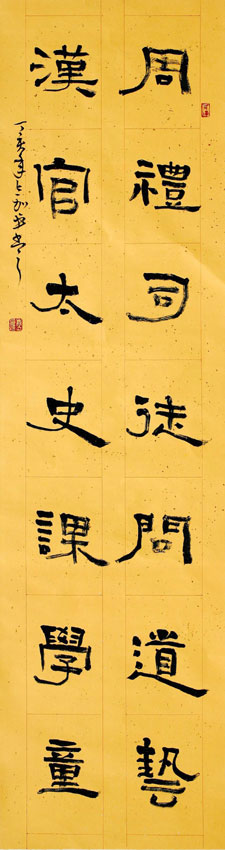 周禮司徒問道藝
漢官太史課學童
丁亥年